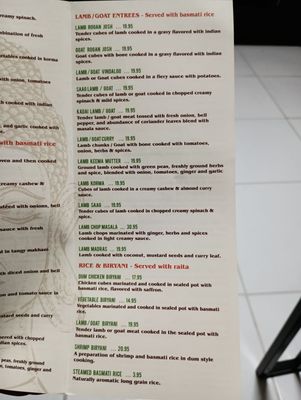 LAMB / GOAT ENTREES - Served with basmati rice
LAMB ROGAN JOSH ... 19.95
Tender cubes of lamb cooked in a gravy flavored with indian
spices.
GOAT ROGAN JOSH ... 19.95
Goat cubes with bone cooked in a gravy flavored with indian
spices.
LAMB / GOAT VINDALOO ... 19.95
Lamb or Goat cubes cooked in a fiery sauce with potatoes.
SAAG LAMB / GOAT ... 19.95
Tender cubes of lamb or goat cooked in chopped creamy
spinach & mild spices.
KADAI LAMB / GOAT ... 19.95
Tender lamb / goat meat tossed with fresh onion, bell
pepper, and abundance of coriander leaves blend with
masala sauce.
LAMB / GOAT CURRY ... 19.95
Lamb chunks / Goat with bone cooked with tomatoes,
onion, herbs & spices.
LAMB KEEMA MUTTER ... 19.95
Ground lamb cooked with green peas, freshly ground herbs
and spice, blended with onion, tomatoes, ginger and garlic
LAMB KORMA ... 19.95
Cubes of lamb cooked in a creamy cashew & almond curry
sauce.
LAMB SAAG ... 19.95
Tender cubes of lamb cooked in chopped creamy spinach &
spice.
LAMB CHOP MASALA ... 30.95
Lamb chops marinated with ginger, herbs and spices
cooked in light creamy sauce.
LAMB MADRAS ... 19.95
Lamb cooked with coconut, mustard seeds and curry leaf.
RICE & BIRYANI - Served with raita
DUM CHICKEN BIRYANI ... 17.95
Chicken cubes marinated and cooked in sealed pot with
basmati rice, flavored with saffron.
VEGETABLE BIRYANI ... 14.95
Vegetables marinated and cooked in sealed pot with basmati
rice.
LAMB / GOAT BIRYANI ... 19.95
Tender lamb or goat meat cooked in the sealed pot with
basmati rice.
SHRIMP BIRYANI ... 20.95
A preparation of shrimp and basmati rice in dum style
cooking.
STEAMED BASMATI RICE ... 3.95
Naturally aromatic long grain rice.